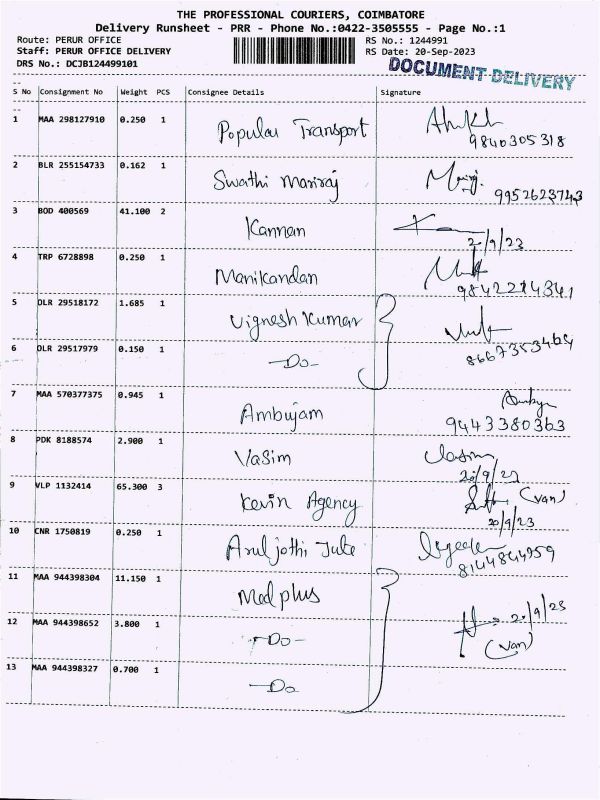 THE PROFESSIONAL COURIERS, COIMBATORE
Delivery Runsheet - PRR - Phone No.:0422-3505555 - Page No.:1
Route: PERUR OFFICE RS No.: 1244991
Staff: PERUR OFFICE DELIVERY RS Date: 20-Sep-2023
DRS No.: DCJB124499101 DOCUMENT DELIVERY
S No Consignment No Weight PCS Consignee Details Signature
1 MAA 298127910 0.250 1 Popular Transport
9840305318
2 BLR 255154733 0.162 1 Swathi Mariraj
9952623743
3 BOD 400569 41.100 2 Kannan
20/9/23
4 TRP 6728898 0.250 1 Manikandan
9842214341
5 DLR 29518172 1.685 1 Vignesh Kumar
8667353464
6 DLR 29517979 0.150 1 -Do-
7 MAA 570377375 0.945 1 Ambujam
9443380363
8 PDK 8188574 2.900 1 Vasim Vasim
20/9/23
9 VLP 1132414 65.300 3 Kevin Agency (van)
20/9/23
10 CNR 1750819 0.250 1 Arul jothi Jute
8144844959
11 MAA 944398304 11.150 1 Med plus
20/9/23
12 MAA 944398652 3.800 1 -Do- (van)
13 MAA 944398327 0.700 1 -Do